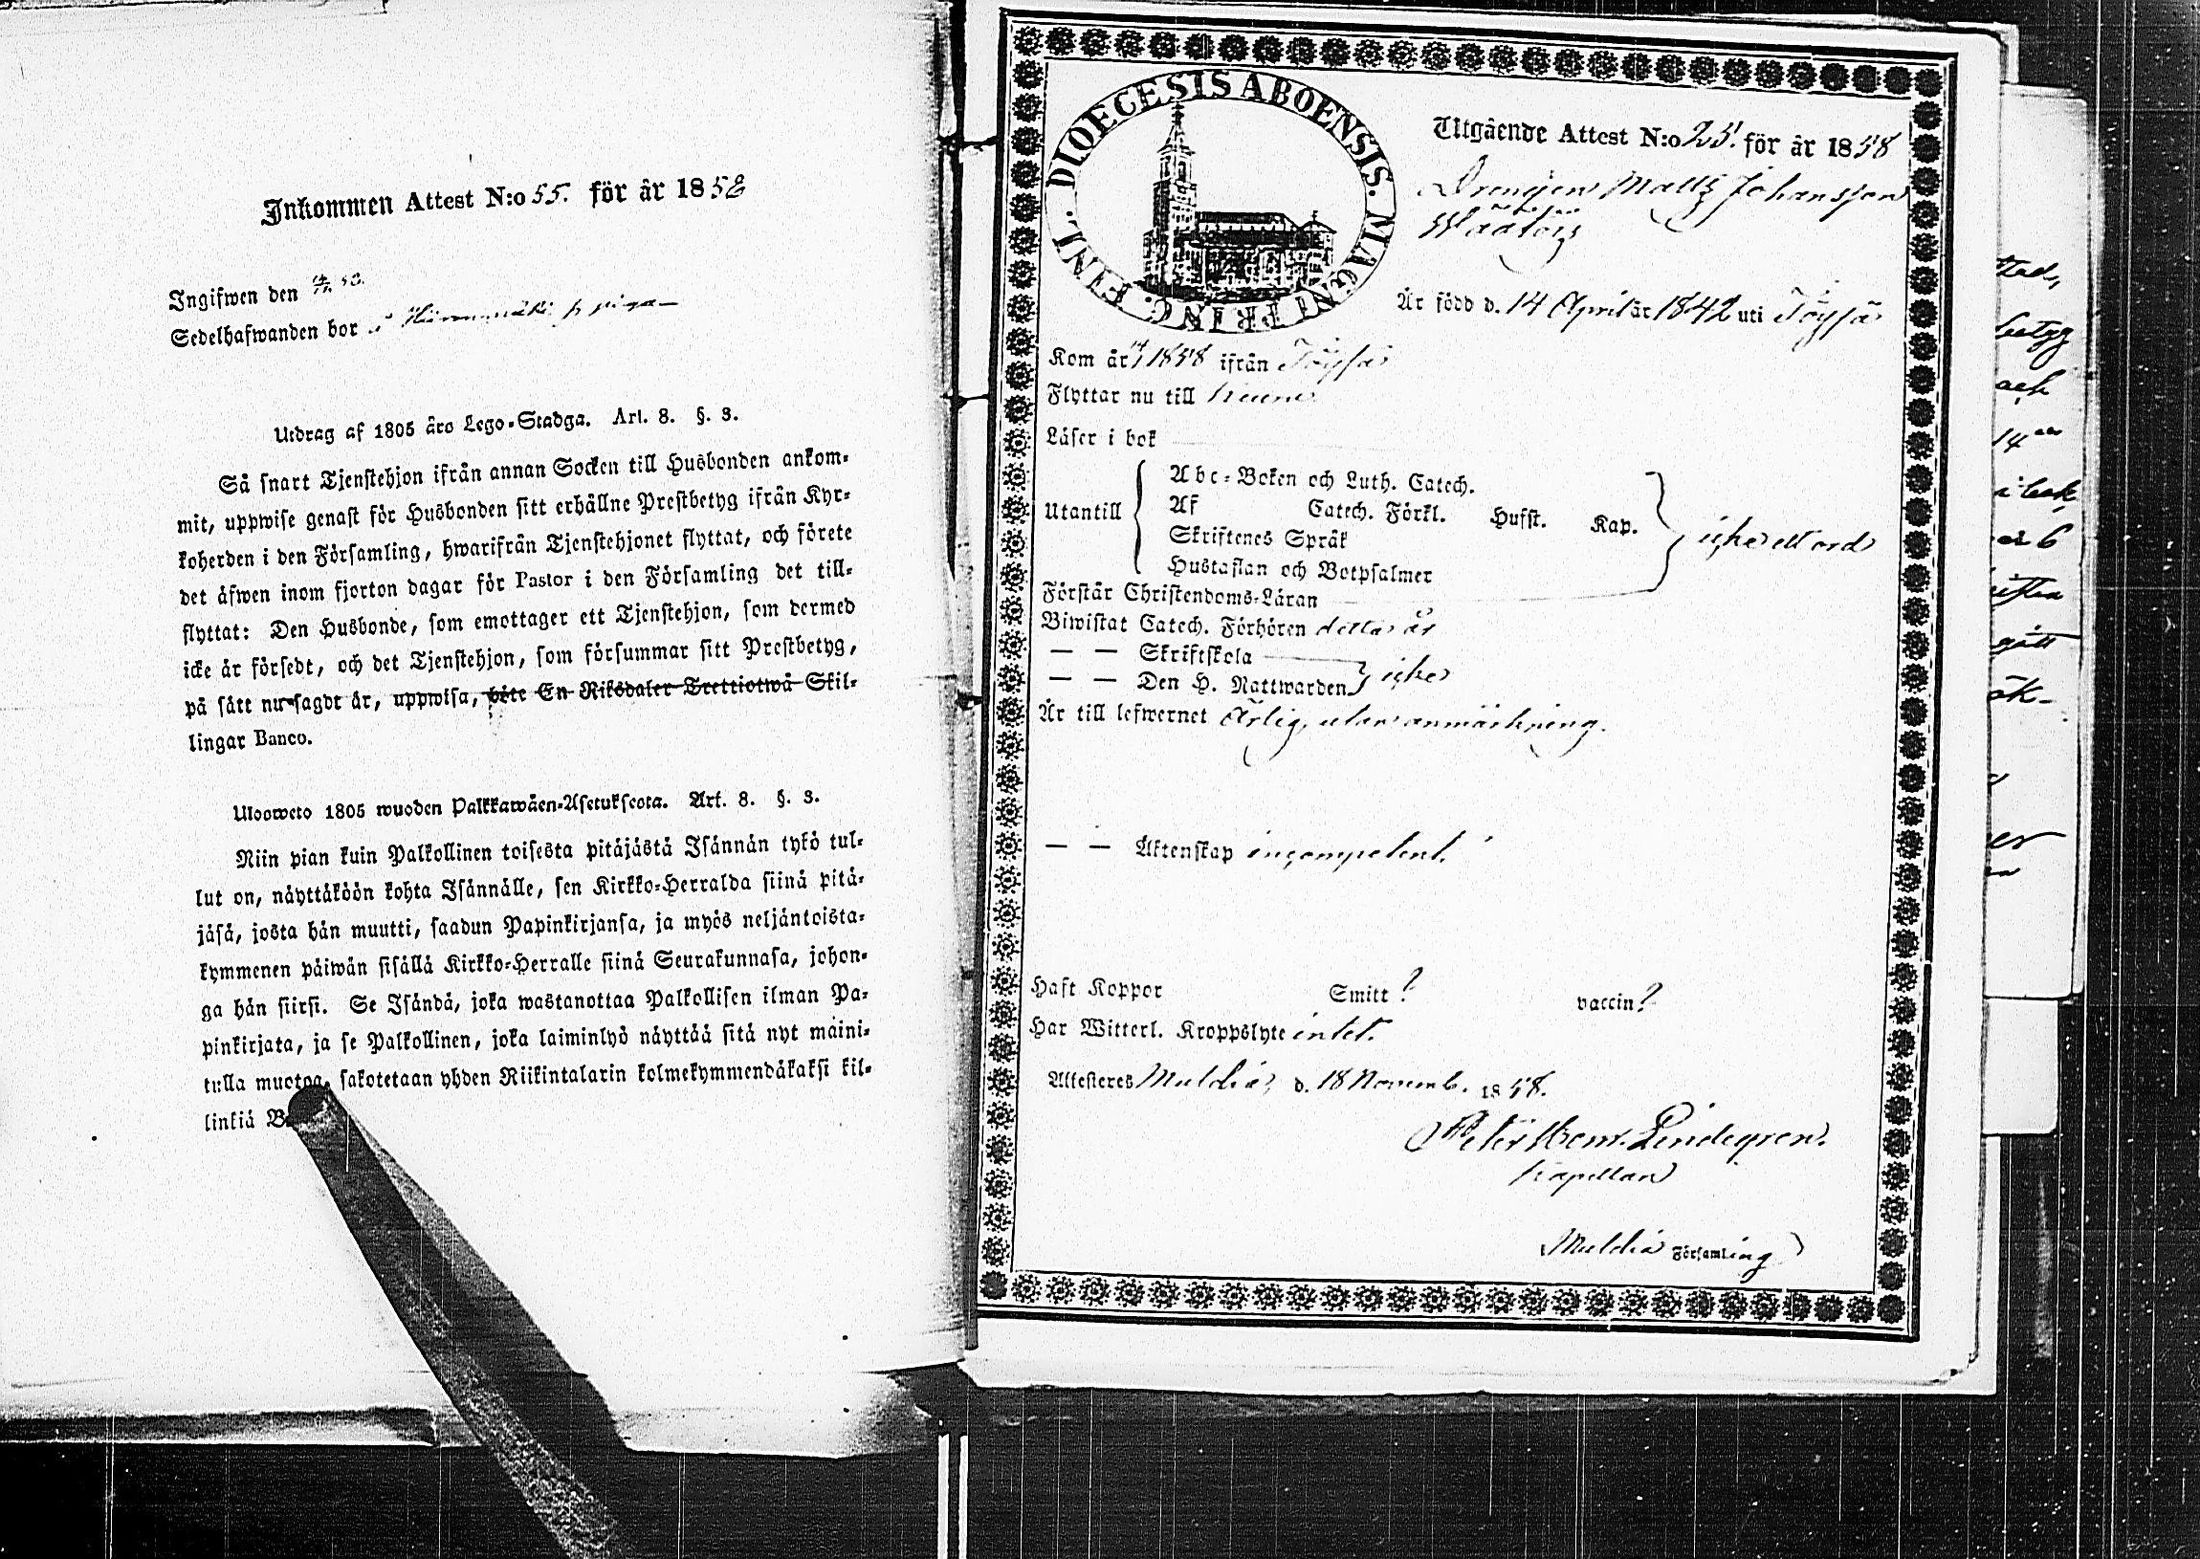 Inkommen Attest N:o 55. för år 1858
Ingifwen den
Sedelhafwanden bor
Utdrag af 1805 års Lego-Stadga. Art. 8. §. 3.
Så snart Tjenstehjon ifrån annan Socken till Husbonden ankom-
mit, uppwise genast för Husbonden sitt erhållne Prestbetyg ifrån Kyr-
koherden i den Församling, hwarifrån Tjenstehjonet flyttat, och förete
det äfwen inom fjorton dagar för Pastor i den Församling det till-
flyttat: Den Husbonde, som emottager ett Tjenstehjon, som dermed
icke är försedt, och det Tjenstehjon, som försummar sitt Prestbetyg,
på sätt nu sagdt är, uppwisa, böte En Riksdaler Trettiotwå Skil-
lingar Banco.
Uloosweto 1805 wuoden Palkkawäen-Asetuksesta. Art. 8. §. 3.
Niin pian kuin Palkollinen toisesta pitäjästä Isännän tykö tul-
lut on, näyttäköön kohta Isännälle, sen Kirkko-Herralda siinä pitä-
jäsä, josta hän muutti, saadun Papinkirjansa, ja myös neljäntoista-
kymmenen päiwän sisällä Kirkko-Herralle siinä Seurakunnasa, johon-
ga hän siirsi. Se Isändä, joka wastanottaa Palkollisen ilman Pa-
pinkirjata, ja se Palkollinen, joka laiminlyö näyttää sitä nyt maini-
tulla muotoa, sakotetaan yhden Riikintalarin kolmekymmendäkaksi kil-
linkiä B
DIOECESIS ABOENSIS. MAGNI PRINC. FINL.
Utgående Attest N:o 25. för år 1858
Drengen Matts Johansson
Är född d. 14 April år 1842 uti Töysä
Kom år 1858 ifrån Töysä
Flyttar nu till
Läser i bok
Utantill
Abc-Boken och Luth. Catech.
Af Catech. Förkl. Hufst. Kap.
Skriftenes Språk
Hustaflan och Botpsalmer
icke ett ord
Förstår Christendoms-Läran
Biwistat Catech. Förhören detta år
— — Skriftskola
— — Den H. Nattwarden
icke
Är till lefwernet Ärlig, utan anmärkning.
— — Äktenskap incompetent.
Haft Koppor Smitt? vaccin?
Har Witterl. Kroppslyte intet.
Attesteres Muldia, d. 18 Novemb. 1858.
Peter Henr. Lindegren.
Kapellan
Muldia Församling
betyg
och
14
gått